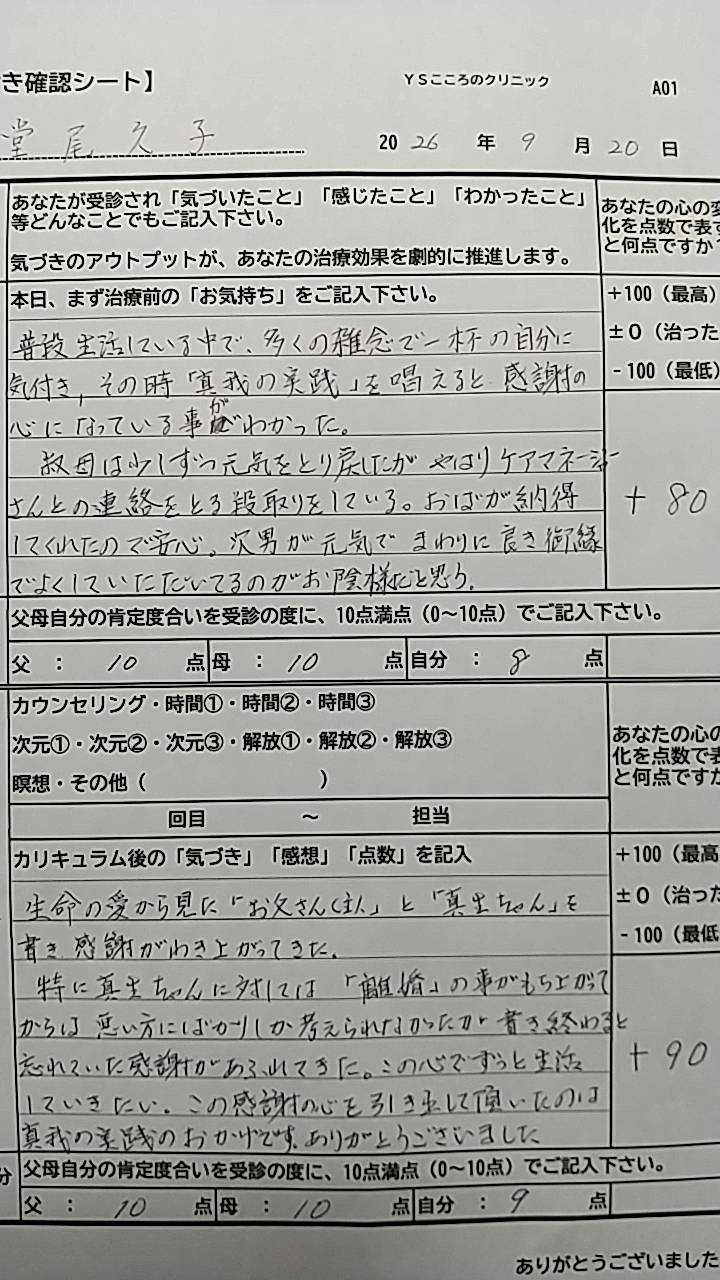 き確認シート】 YSこころのクリニック A01
堂尾久子 2026年9月20日
あなたが受診され「気づいたこと」「感じたこと」「わかったこと」
等どんなことでもご記入下さい。
気づきのアウトプットが、あなたの治療効果を劇的に推進します。
あなたの心の変
化を点数で表す
と何点ですか?
本日、まず治療前の「お気持ち」をご記入下さい。
+100(最高)
±0(治った
-100(最低)
普段生活している中で、多くの雑念で一杯の自分に
気付き、その時「真我の実践」を唱えると感謝の
心になっている事がわかった。
叔母は少しずつ元気をとり戻したが やはりケアマネージャー
さんとの連絡をとる段取りをしている。おばが納得
してくれたので安心。次男が元気で まわりに良き御縁
でよくしていただいてるのがお陰様だと思う。
+80
父母自分の肯定度合いを受診の度に、10点満点(0~10点)でご記入下さい。
父 : 10 点 母 : 10 点 自分 : 8 点
カウンセリング・時間①・時間②・時間③
次元①・次元②・次元③・解放①・解放②・解放③
瞑想・その他( )
回目 ~ 担当
あなたの心の
化を点数で表
と何点ですか
カリキュラム後の「気づき」「感想」「点数」を記入
+100(最高
±0(治った
-100(最低
生命の愛から見た「お父さん(主人)」と「真生ちゃん」を
書き感謝がわき上がってきた。
特に真生ちゃんに対しては「離婚」の事がもち上がって
からは悪い方にばかりしか考えられなかったが書き終わると
忘れていた感謝があふれてきた。この心でずっと生活
していきたい。この感謝の心を引き出して頂いたのは
真我の実践のおかげです。ありがとうございました
+90
分 父母自分の肯定度合いを受診の度に、10点満点(0~10点)でご記入下さい。
父 : 10 点 母 : 10 点 自分 : 9 点
ありがとうございました